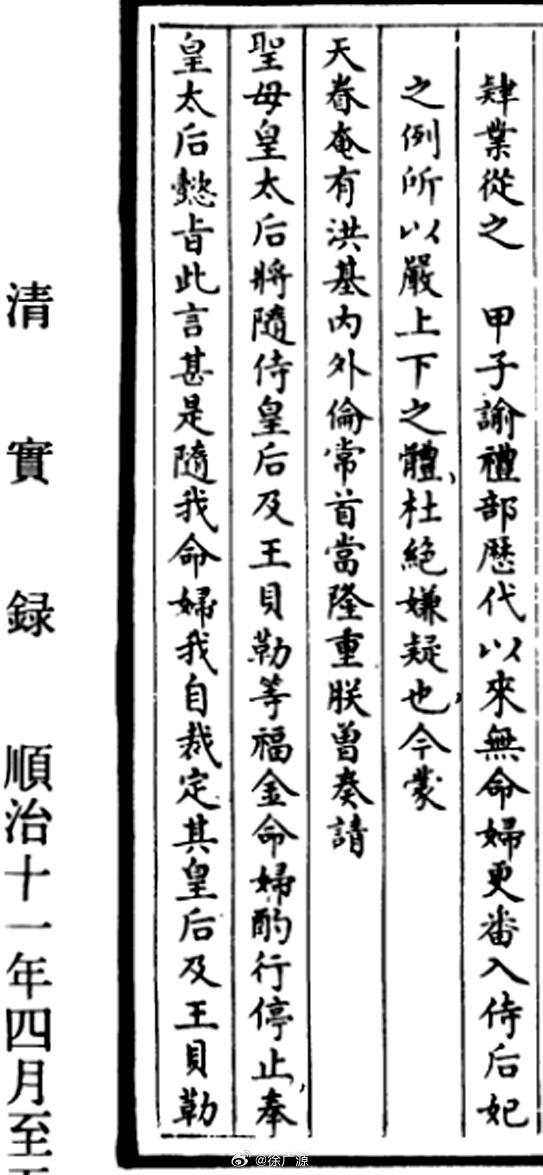 肄業從之　甲子諭禮部歷代以來無命婦更番入侍后妃
之例所以嚴上下之體、杜絕嫌疑也、今蒙
天眷奄有洪基內外倫常首當隆重朕曾奏請
聖母皇太后將隨侍皇后及王貝勒等福金命婦酌行停止、奉
皇太后懿旨此言甚是隨我命婦我自裁定其皇后及王貝勒
清實録　順治十一年四月至
@徐广源